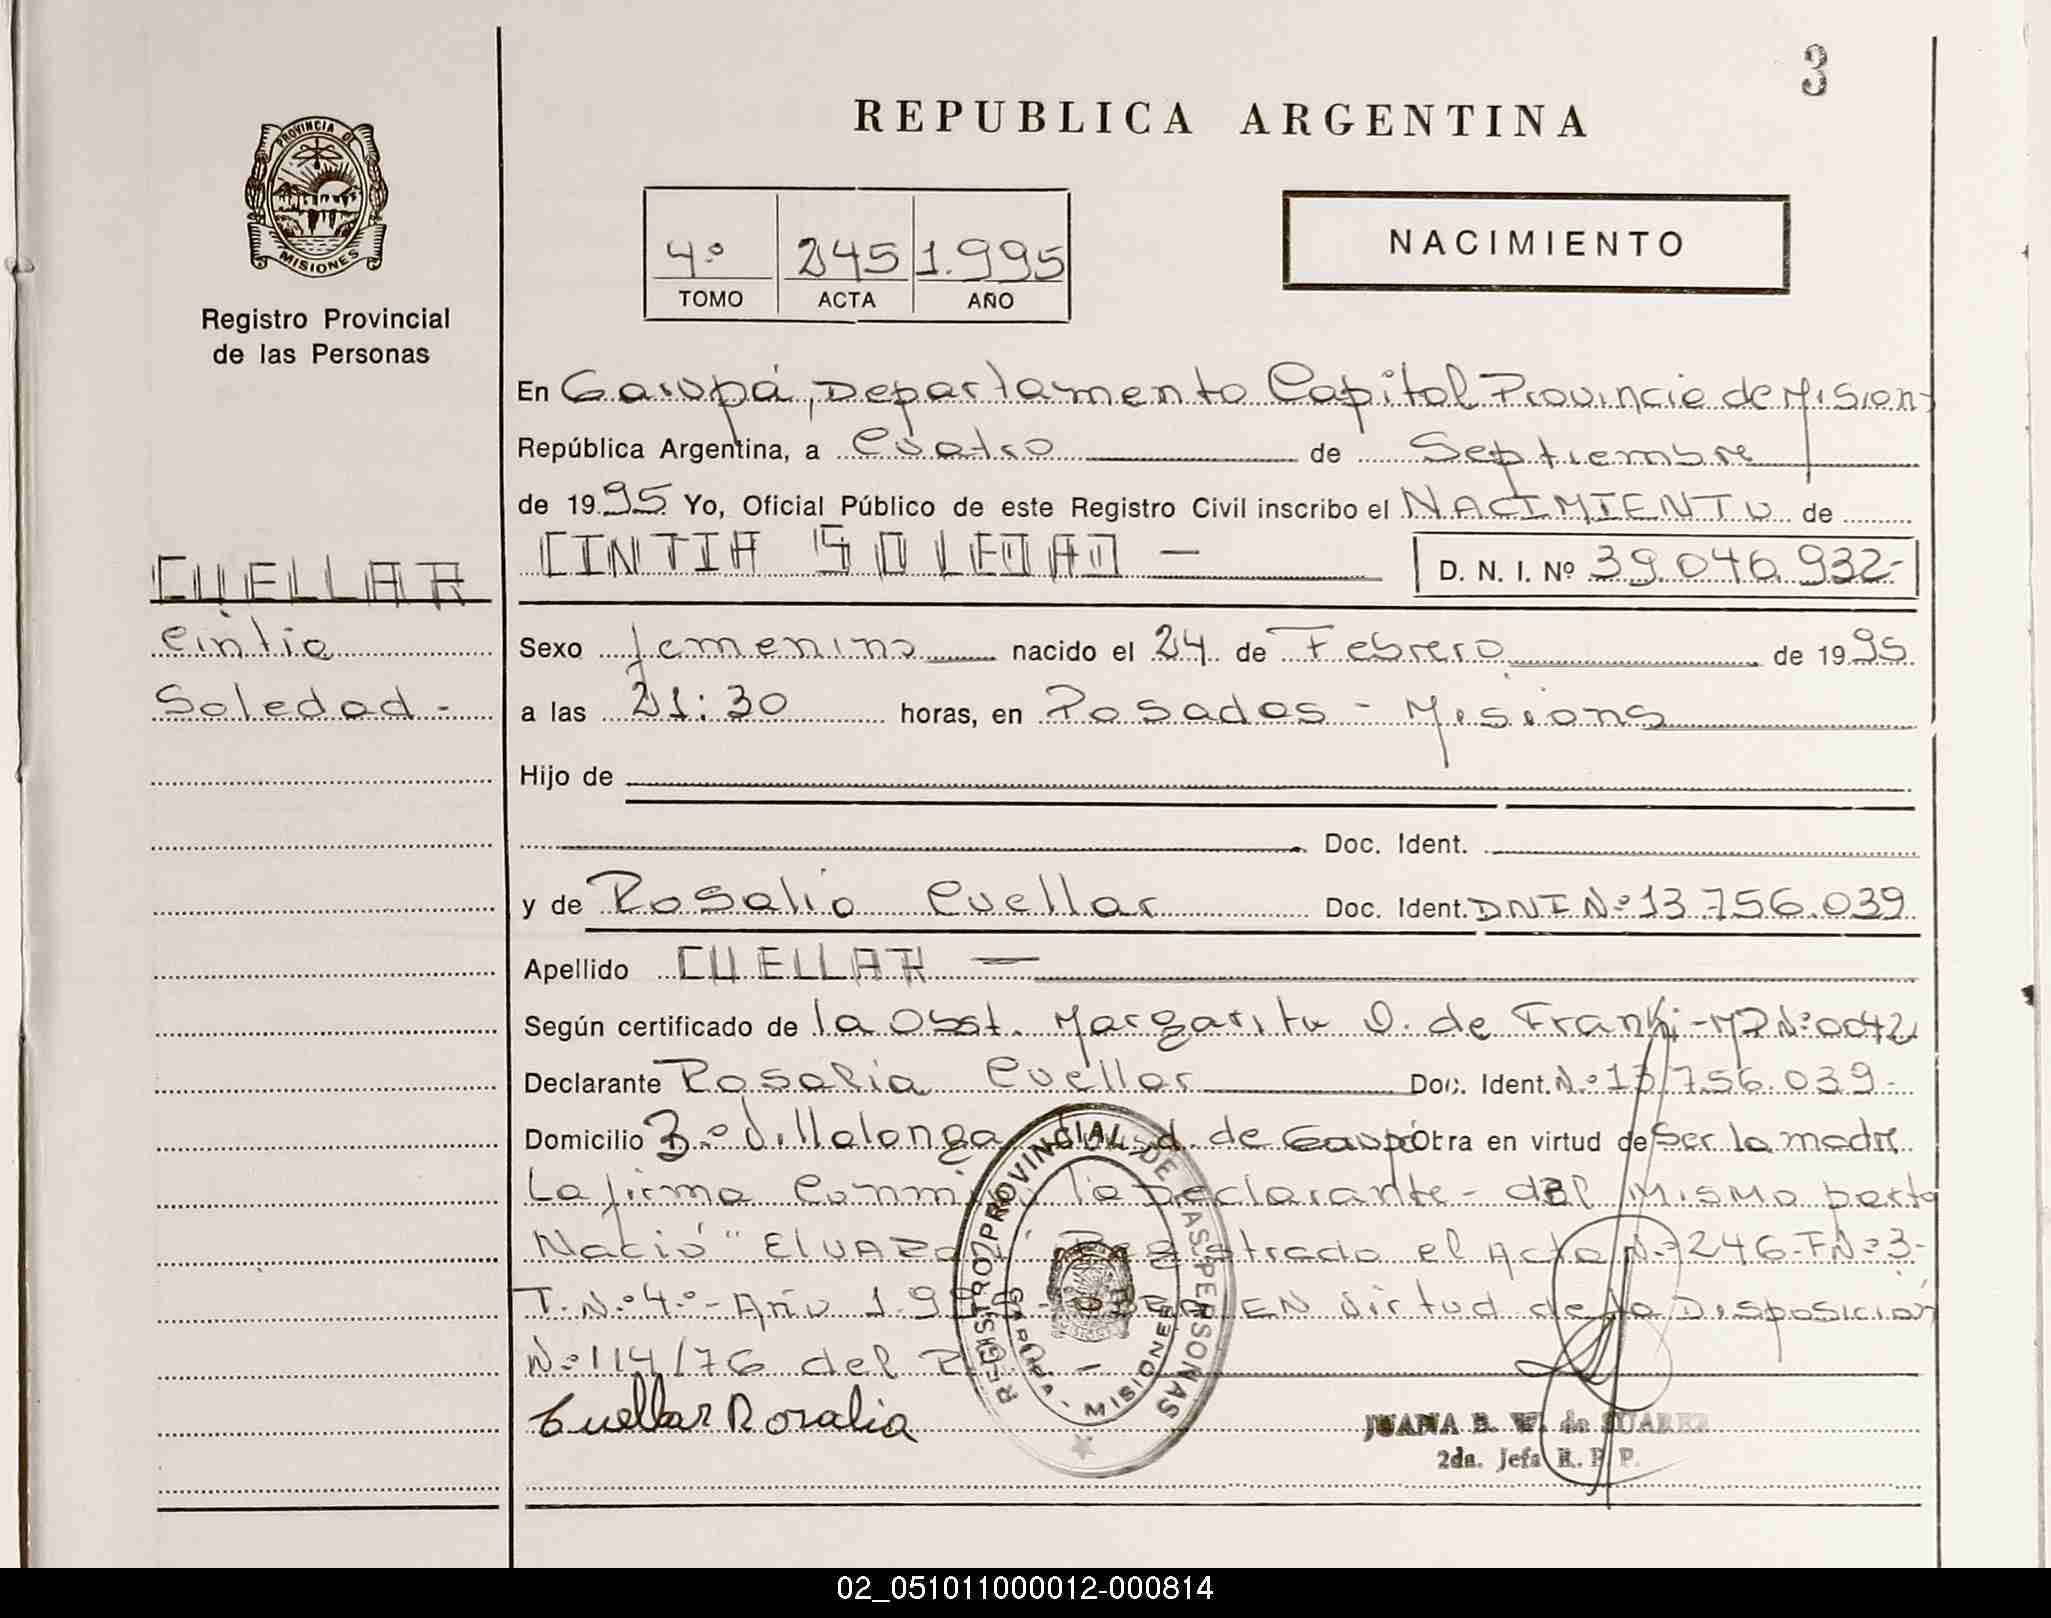 3
REPUBLICA ARGENTINA
PROVINCIA DE
MISIONES
Registro Provincial
de las Personas
4º 245 1.995
TOMO ACTA AÑO
NACIMIENTO
En Garupá, Departamento Capital Provincia de Mision
República Argentina, a Cuatro de Septiembre
de 1995 Yo, Oficial Público de este Registro Civil inscribo el NACIMIENTO de
CUELLAR
CINTIA SOLEDAD — D. N. I. Nº 39.046.932-
Cintia
Sexo femenino nacido el 24 de Febrero de 1995
Soledad -
a las 21:30 horas, en Posadas - Misions
Hijo de
Doc. Ident.
y de Rosalia Cuellar Doc. Ident. DNI Nº 13.756.039
Apellido CUELLAR —
Según certificado de la Obst. Margarita O. de Franki - MP Nº 0042
Declarante Rosalia Cuellar Doc. Ident. Nº 13.756.039-
Domicilio Bº Villalonga de Garupá Obra en virtud de Ser la madre
La firma la Declarante - del mismo parto
Nació Registrado el Acta Nº 246-FNº 3-
T. Nº 4º - Año 1.9 EN Virtud de la Disposición
Nº 114/76 del
Cuellar Rosalia
REGISTRO PROVINCIAL DE LAS PERSONAS
GARUPA - MISIONES
JUANA B. W. de SUAREZ
2da. Jefa R. P. P.
02_051011000012-000814